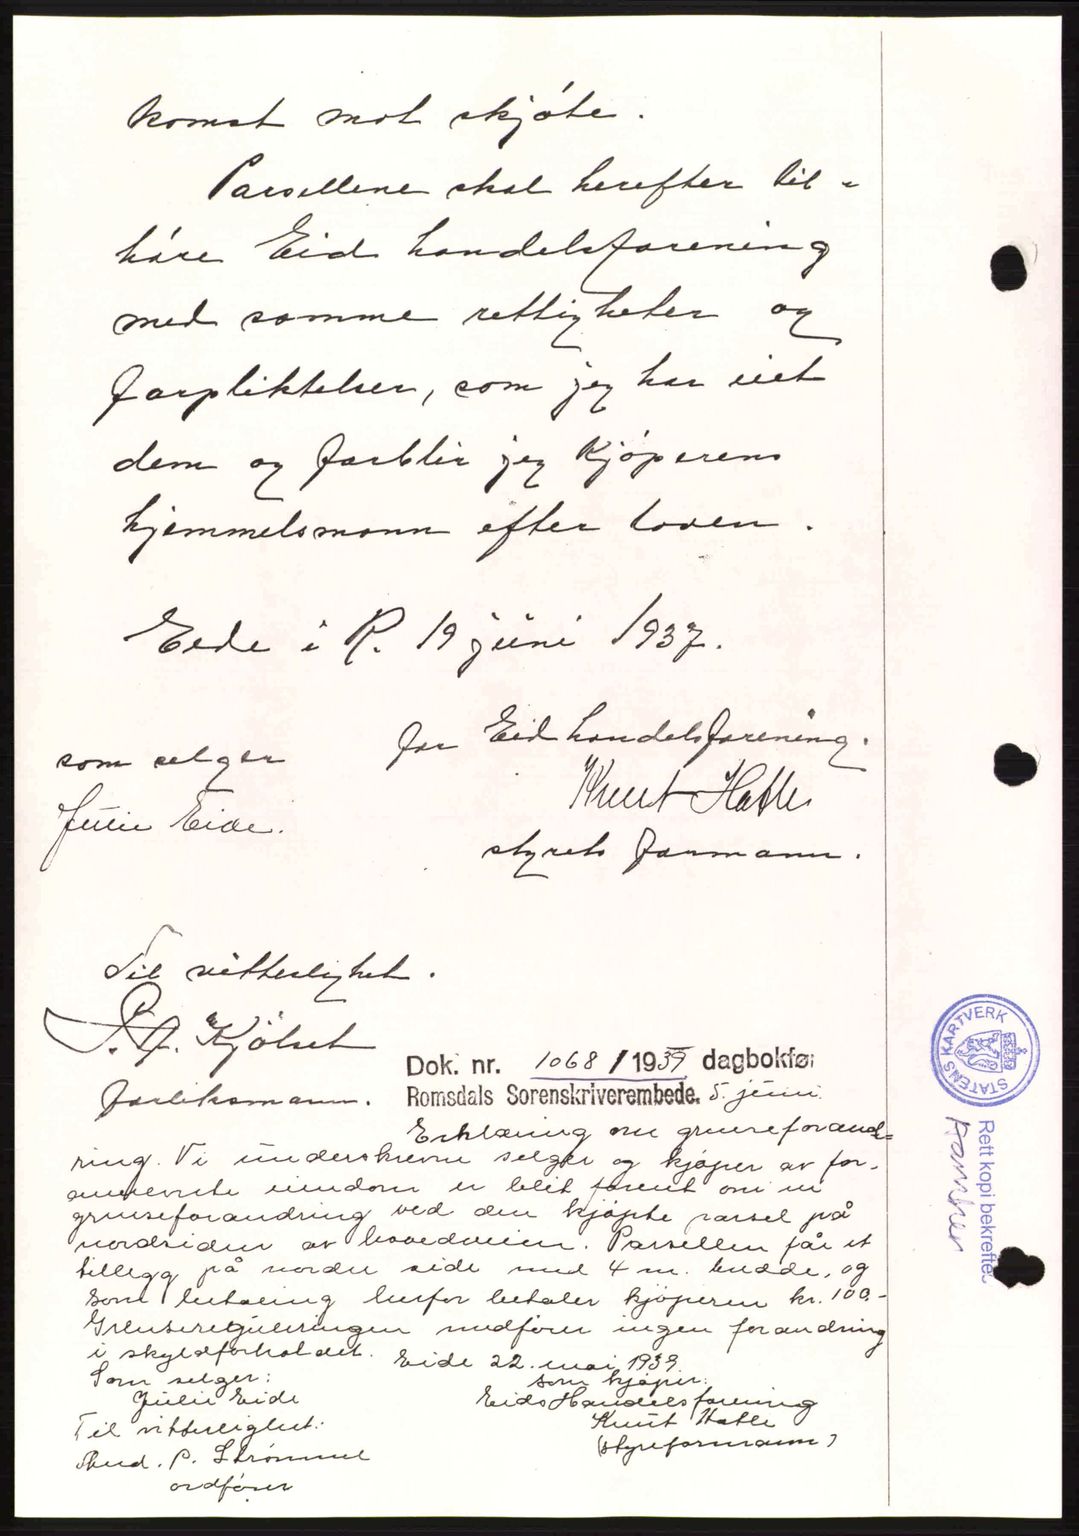 komst mot skjóte.
Parsellene skal herefter til-
hóre Eid handelsforening
med samme rettigheter og
forpliktelser, som jeg har eiet
dem og forblir jeg kjóperens
hjemmelsmann efter loven.
Eide i R. 19 juni 1937.
for Eid handelsforening.
som selger
Knut Hatle
Julie Eide.
styrets formann.
Til vitterlighet.
P. A. Kjölset
forliksmann.
Dok. nr. 1068 / 1939 dagbokfør
Romsdals Sorenskriverembede. 5. juni.
Erklæring om grenseforand-
ring. Vi underskrevne selger og kjøper av for-
annevnte eiendom er blit forent om en
grenseforandring ved den kjøpte parsel på
nordsiden av hovedveien. Parsellen får et
tillegg på nordre side med 4 m. bredde, og
som betaling herfor betaler kjøperen kr. 100.-
Grensereguleringen medfører ingen forandring
i skyldforholdet. Eide 22. mai 1939.
Som selger: som kjøper:
Julie Eide Eids Handelsforening
Til vitterlighet: Knut Hatle
P. Strømmel (styreformann)
ordfører
STATENS KARTVERK
Rett kopi bekreftes